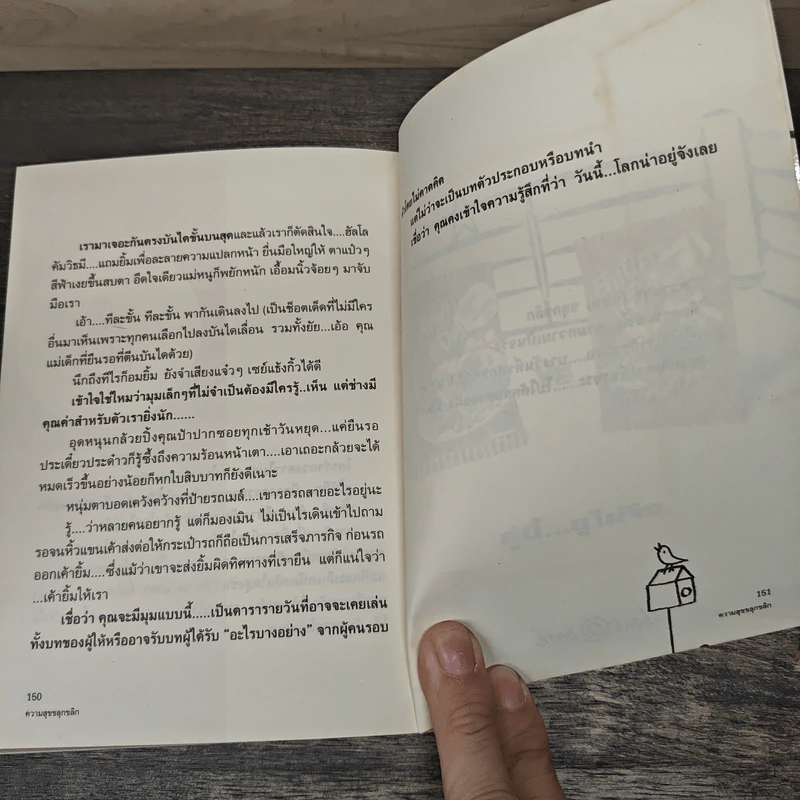 เรามาเจอะกันตรงบันไดขั้นบนสุดและแล้วเราก็ตัดสินใจ....ฮัลโล
คัมวิธมี....แถมยิ้มเพื่อละลายความแปลกหน้า ยื่นมือใหญ่ให้ ตาแป๋วๆ
สีฟ้าเงยขึ้นสบตา อึดใจเดียวแม่หนูก็พยักหนัก เอื้อมนิ้วจ้อยๆ มาจับ
มือเรา
เอ้า....ทีละขั้น ทีละขั้น พากันเดินลงไป (เป็นช็อตเด็ดที่ไม่มีใคร
อื่นมาเห็นเพราะทุกคนเลือกไปลงบันไดเลื่อน รวมทั้งยัย...เอ้อ คุณ
แม่เด็กที่ยืนรอที่ตีนบันไดด้วย)
นึกถึงทีไรก็อมยิ้ม ยังจำเสียงแจ๋วๆ เซย์แธ้งกิ้วได้ดี
เข้าใจใช่ไหมว่ามุมเล็กๆที่ไม่จำเป็นต้องมีใครรู้..เห็น แต่ช่างมี
คุณค่าสำหรับตัวเรายิ่งนัก......
อุดหนุนกล้วยปิ้งคุณป้าปากซอยทุกเช้าวันหยุด...แค่ยืนรอ
ประเดี๋ยวประด๋าวก็รู้ซึ้งถึงความร้อนหน้าเตา....เอาเถอะกล้วยจะได้
หมดเร็วขึ้นอย่างน้อยก็หกใบสิบบาทก็ยังดีเนาะ
หนุ่มตาบอดเคว้งคว้างที่ป้ายรถเมล์....เขารอรถสายอะไรอยู่นะ
รู้....ว่าหลายคนอยากรู้ แต่ก็มองเมิน ไม่เป็นไรเดินเข้าไปถาม
รอจนหิ้วแขนเค้าส่งต่อให้กระเป๋ารถก็ถือเป็นการเสร็จภารกิจ ก่อนรถ
ออกเค้ายิ้ม....ซึ่งแม้ว่าเขาจะส่งยิ้มผิดทิศทางที่เรายืน แต่ก็แน่ใจว่า
...เค้ายิ้มให้เรา
เชื่อว่า คุณจะมีมุมแบบนี้.....เป็นดารารายวันที่อาจจะเคยเล่น
ทั้งบทของผู้ให้หรืออาจรับบทผู้ได้รับ “อะไรบางอย่าง” จากผู้คนรอบ
150
ความสุขขลุกขลิก
โดยไม่คาดคิด
แต่ไม่ว่าจะเป็นบทตัวประกอบหรือบทนำ
เชื่อว่า คุณคงเข้าใจความรู้สึกที่ว่า วันนี้...โลกน่าอยู่จังเลย
151
ความสุขขลุกขลิก